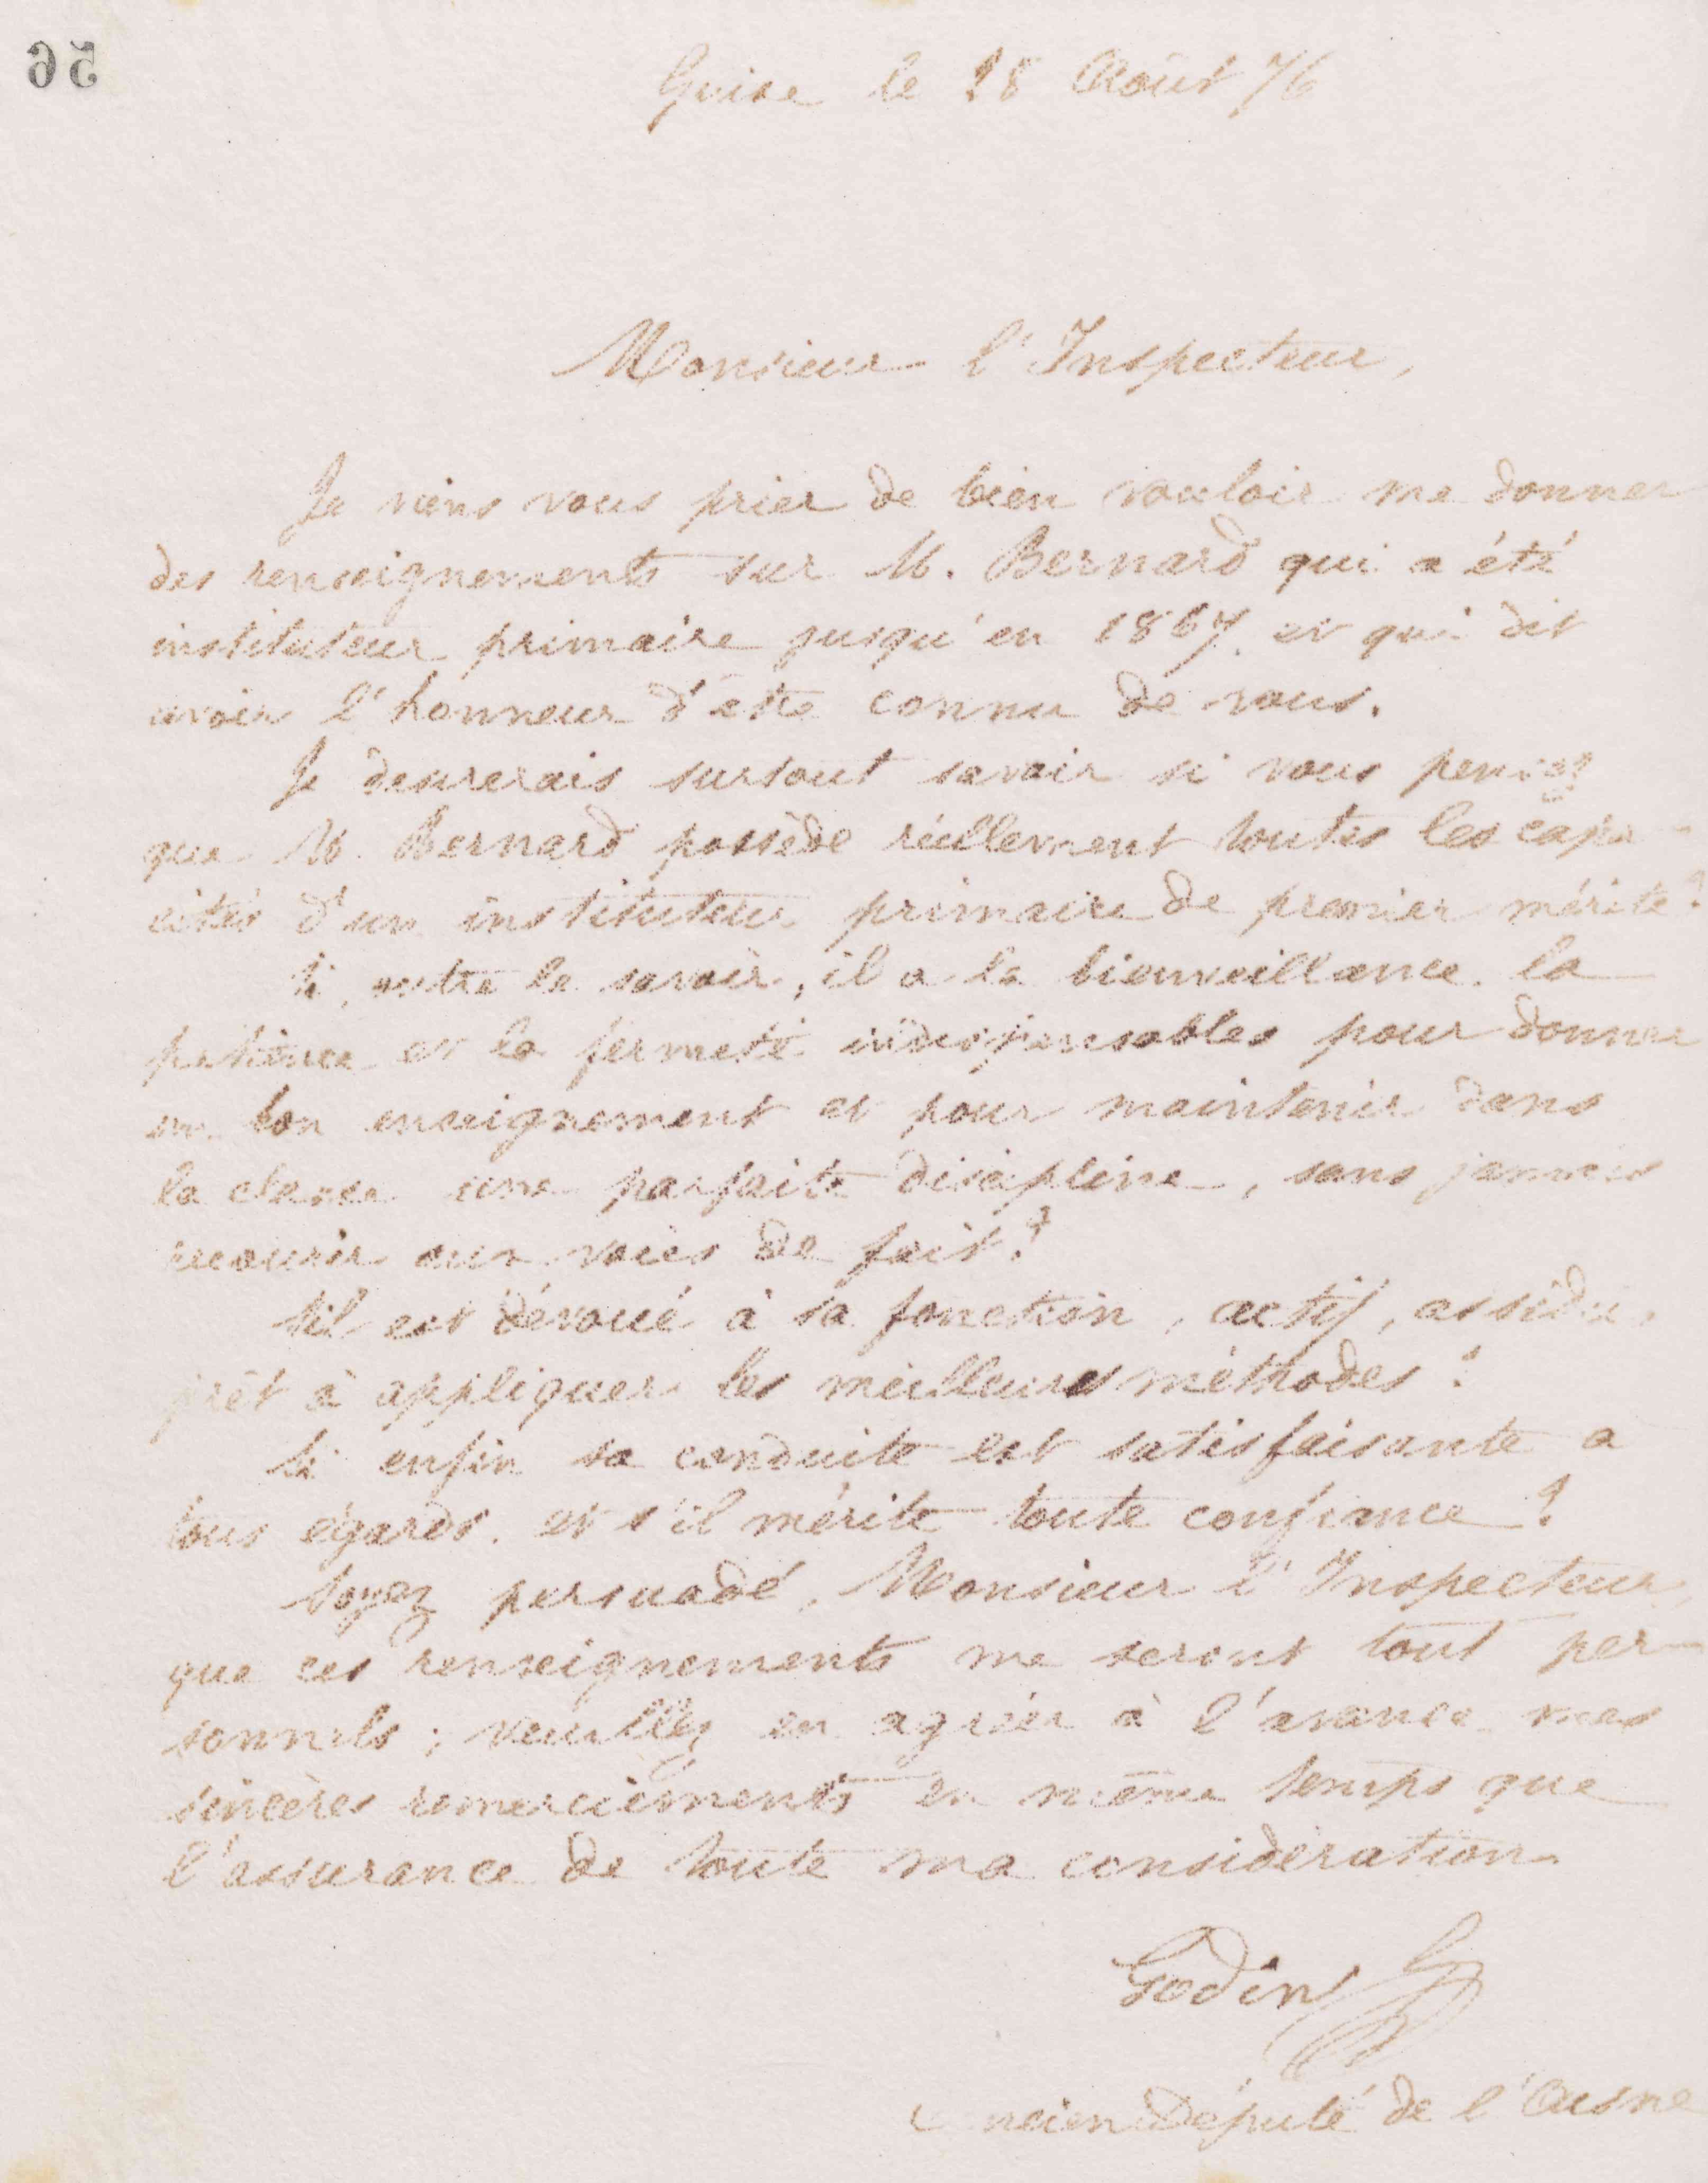 56
Guise le 18 Août 76
Monsieur l'Inspecteur,
Je viens vous prier de bien vouloir me donner
des renseignements sur M. Bernard qui a été
instituteur primaire jusqu'en 1867. et qui dit
avoir l'honneur d'être connu de vous.
Je desirerais surtout savoir si vous pensez
que M. Bernard possède réellement toutes les capa-
cités d'un instituteur primaire de premier mérite?
Si, outre le savoir, il a la bienveillance, la
patience et la fermeté indispensables pour donner
un bon enseignement et pour maintenir dans
la classe une parfaite discipline, sans jamais
recourir aux voies de fait?
S'il est dévoué à sa fonction, actif, assidu,
prêt à appliquer les meilleures méthodes?
Si enfin sa conduite est satisfaisante a
tous égards. et s'il mérite toute confiance?
Soyez persuadé, Monsieur l'Inspecteur,
que ces renseignements me seront tout per-
sonnels; veuillez en agréer à l'avance mes
sincères remerciements en même temps que
l'assurance de toute ma considération
Godin
ancien Député de l'Aisne